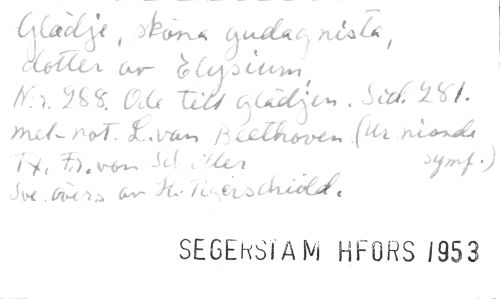 Glädje, sköna gudagnista,
dotter av Elysium,
N:r. 288. Ode till glädjen. Sid. 281.
mel-not. L. van Beethoven. (Ur nionde
Tx. Fr. von Schiller symf.)
Sve. övers. av H. Tigerschiöld.
SEGERSTAM HFORS 1953